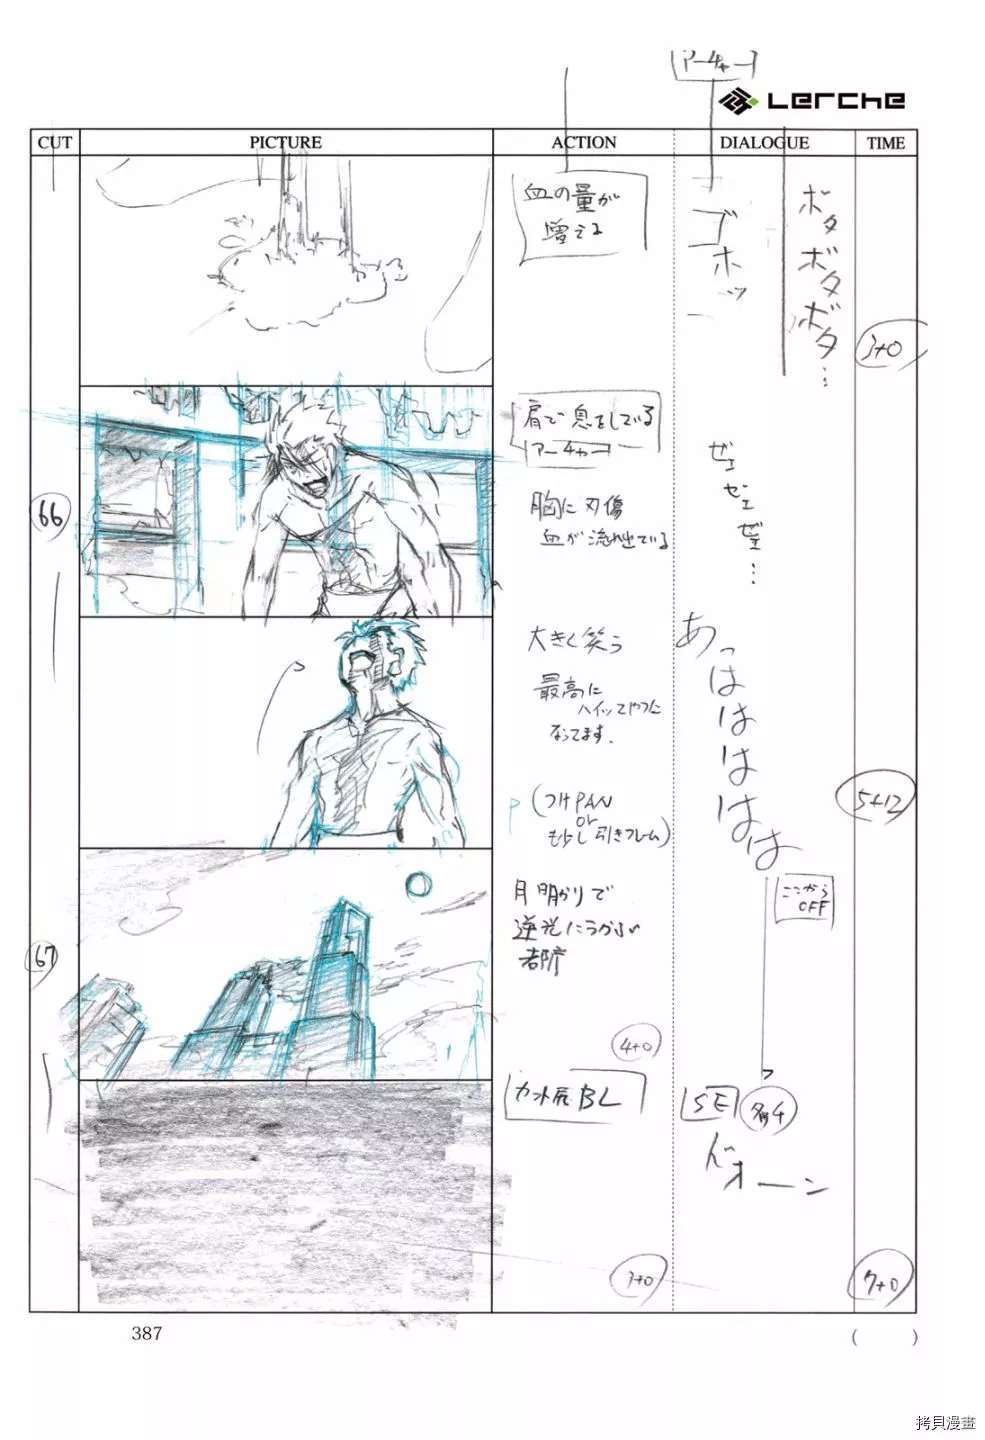 アーチャー
Lerche
CUT PICTURE ACTION DIALOGUE TIME
血の量が
増える
ゴホッ
ボタ
ボタ
ボタ…
3+0
66
肩で息をしている
アーチャー
胸に刃傷
血が流れ出ている
ぜェ
ぜェ
ぜェ…
大きく笑う
最高に
ハイってやつに
なってます。
(つけPAN
or
もう少し引きフレーム)
P
あっはははははは
5+12
67
月明かりで
逆光にうかぶ
都庁
ここから
OFF
4+0
カット尻BL
SE
ドオーン
3+0
7+0
387
( )
拷貝漫畫